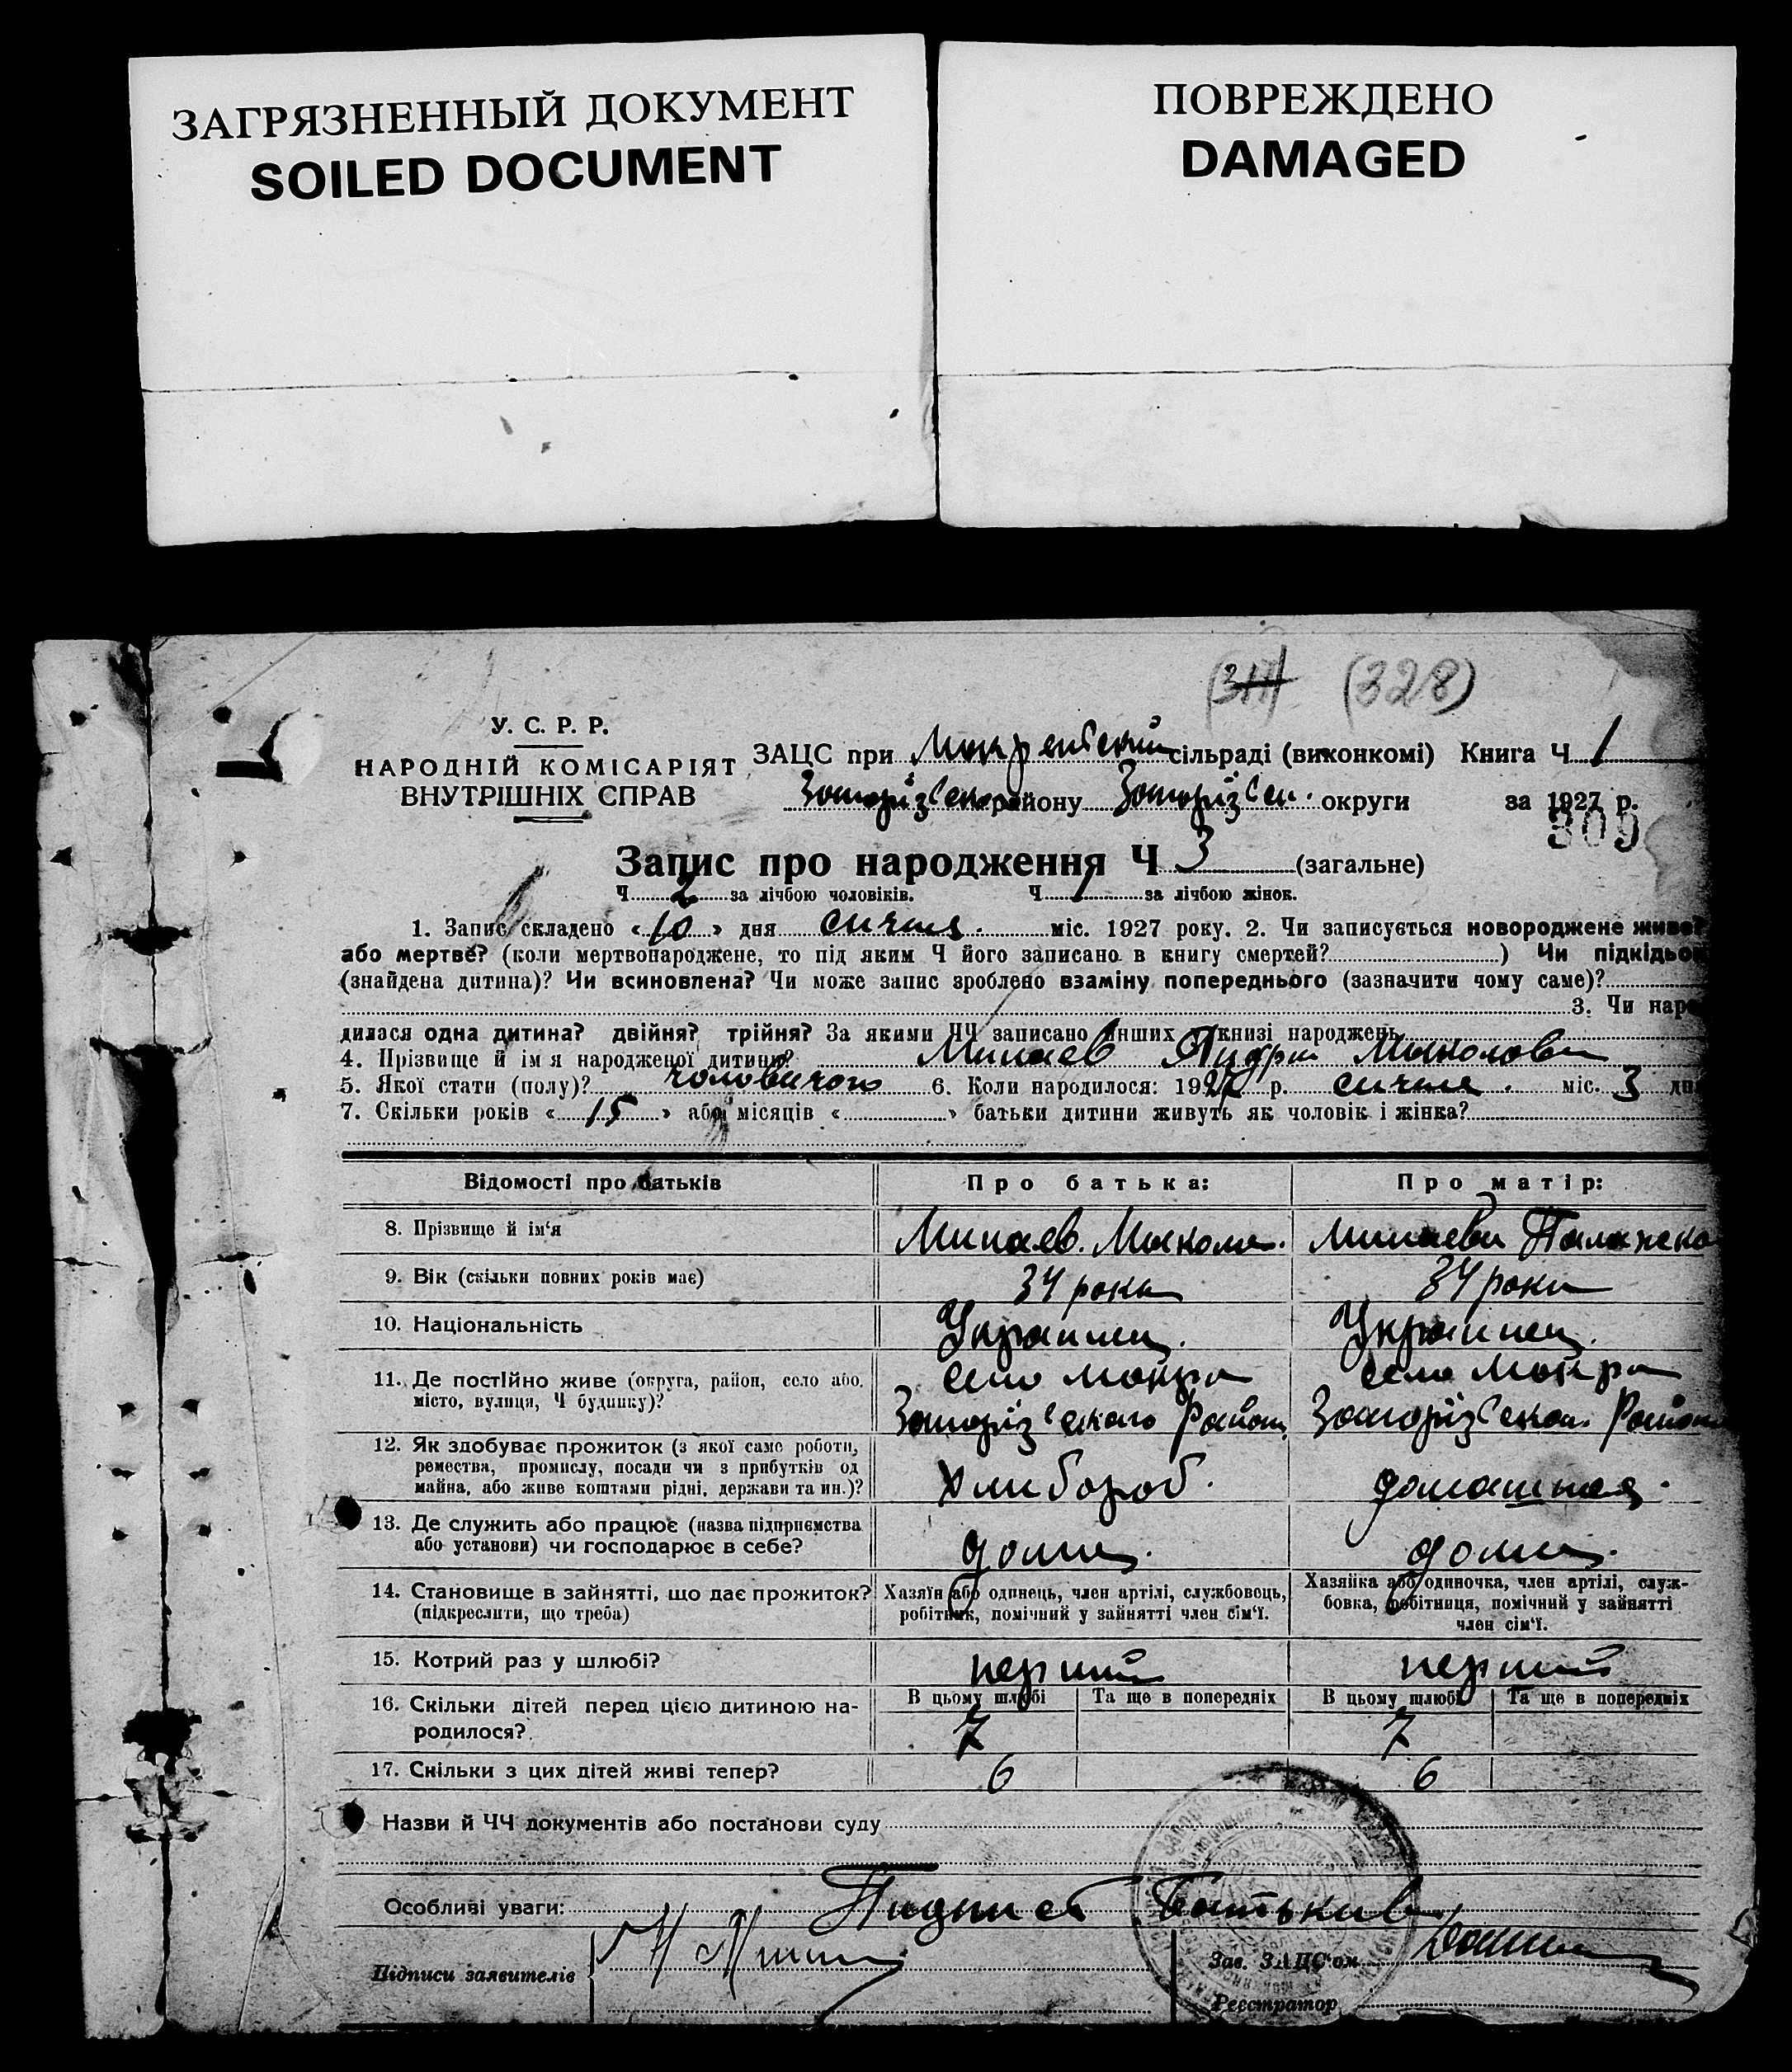 ЗАГРЯЗНЕННЫЙ ДОКУМЕНТ
SOILED DOCUMENT
ПОВРЕЖДЕНО
DAMAGED
(317) (328)
У. С. Р. Р.
НАРОДНІЙ КОМІСАРІЯТ
ВНУТРІШНІХ СПРАВ
ЗАЦС при сільраді (виконкомі) Книга Ч 1
району округи за 1927 р.
309
Запис про народження Ч 3 (загальне)
Ч 2 за лічбою чоловіків. Ч 1 за лічбою жінок.
1. Запис складено «10» дня сичня міс. 1927 року. 2. Чи записується новороджене живе?
або мертве? (коли мертвонароджене, то під яким Ч його записано в книгу смертей? ) Чи підкідьок
(знайдена дитина)? Чи всиновлена? Чи може запис зроблено взаміну попереднього (зазначити чому саме)?
3. Чи наро
дилася одна дитина? двійня? трійня? За якими ЧЧ записано инших в книзі народжень
4. Прізвище й ім'я народженої дитини? Минаев Андрий
5. Якої стати (полу)? 6. Коли народилося: 1927 р. сичня міс. 3 дня
7. Скільки років «15» або місяців « » батьки дитини живуть як чоловік і жінка?
Відомості про батьків Про батька: Про матір:
8. Прізвище й ім'я Минаев. Микола. Минаева Палажка
9. Вік (скільки повних років має) 34 роки 34 роки
10. Національність Украинец. Украинец.
11. Де постійно живе (округа, район, село або село Мокра село Мокра
місто, вулиця, Ч будинку)? Запоріз'ского Район Запоріз'ског. Район
12. Як здобуває прожиток (з якої саме роботи,
ремества, промислу, посади чи з прибутків од
майна, або живе коштами рідні, держави та ин.)? Хлибороб. домашняя.
13. Де служить або працює (назва підприємства
або установи) чи господарює в себе? дома. дома.
14. Становище в зайнятті, що дає прожиток?
(підкреслити, що треба)
Хазяїн або одинець, член артілі, службовець,
робітник, помічний у зайнятті член сім'ї.
Хазяйка або одиночка, член артілі, служ-
бовка, робітниця, помічний у зайнятті
член сім'ї.
15. Котрий раз у шлюбі? перший перший
16. Скільки дітей перед цією дитиною на-
родилося?
В цьому шлюбі Та ще в попередніх В цьому шлюбі Та ще в попередніх
7 7
17. Скільки з цих дітей живі тепер? 6 6
Назви й ЧЧ документів або постанови суду
Особливі уваги: Пидпис Батькив
Підписи заявителів Зав. ЗАЦС'ом
Реєстратор